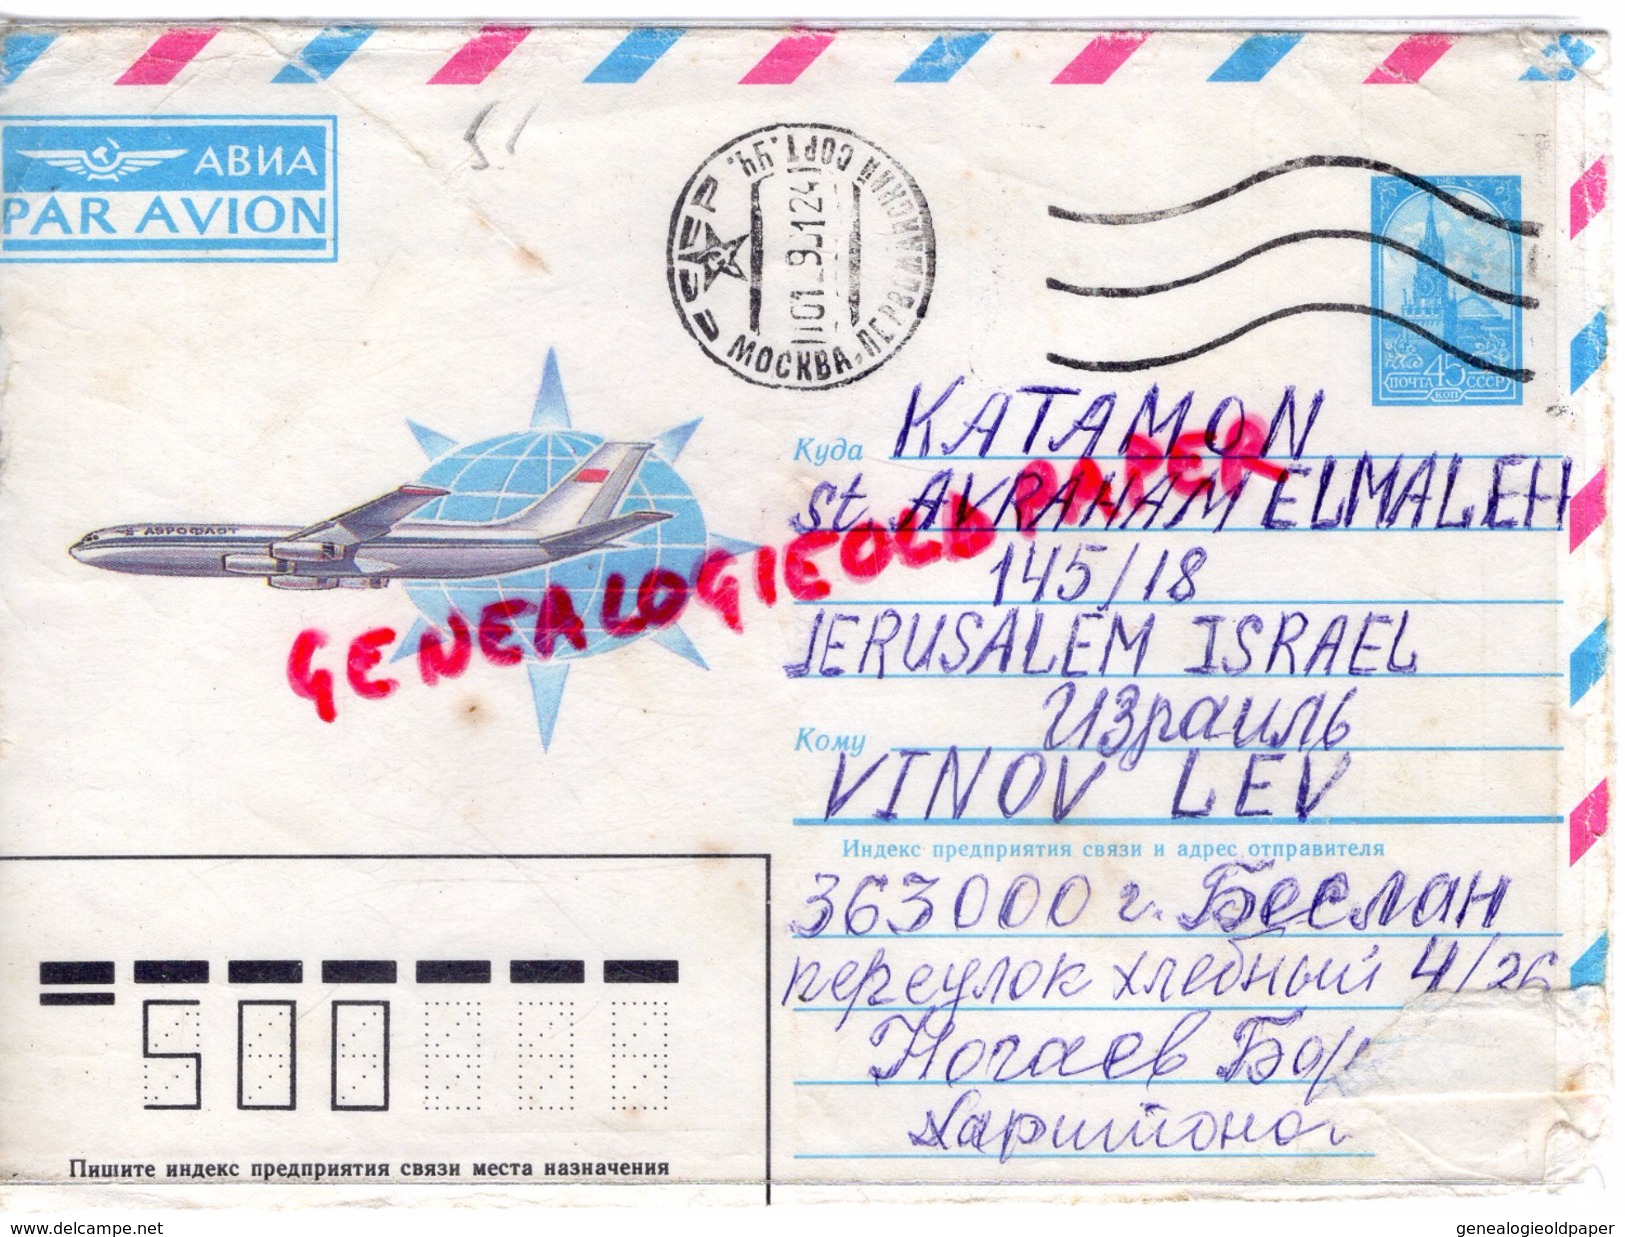 АВИА
PAR AVION
51
СССР
МОСКВА, ПЕРВОМАЙСКИЙ СОРТ. УЧ.
1982
ПОЧТА 45 СССР
КОП
АЭРОФЛОТ
GENEALOGIEOLDPAPER
Куда KATAMON
st. AVRAHAM ELMALEH
145/18
JERUSALEM ISRAEL
Израиль
Кому
VINOV LEV
Индекс предприятия связи и адрес отправителя
363000 г. Беслан
переулок хлебный 4/26
Ногаев Бор
Харитонов
500
Пишите индекс предприятия связи места назначения
www.delcampe.net
genealogieoldpaper